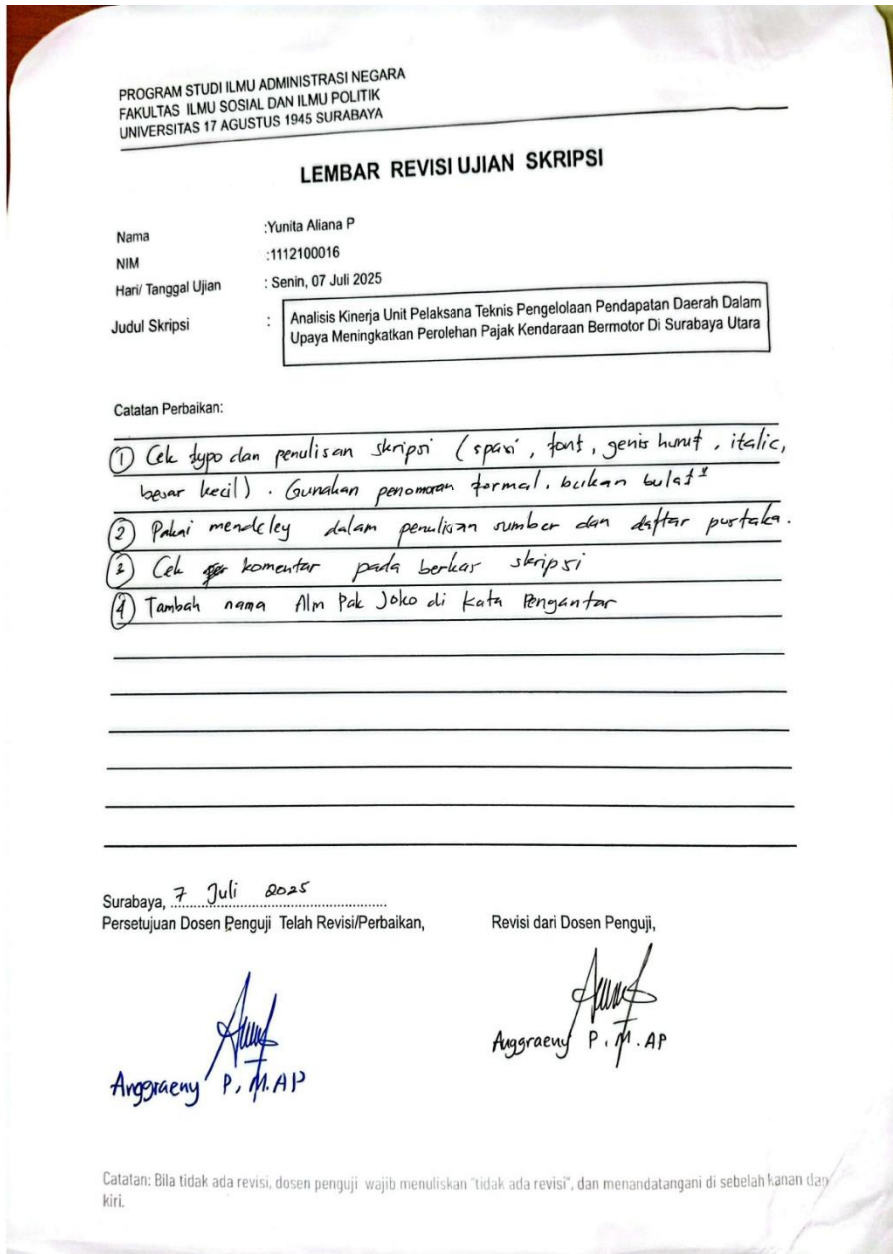 PROGRAM STUDI ILMU ADMINISTRASI NEGARA
FAKULTAS ILMU SOSIAL DAN ILMU POLITIK
UNIVERSITAS 17 AGUSTUS 1945 SURABAYA
LEMBAR REVISI UJIAN SKRIPSI
Nama :Yunita Aliana P
NIM :1112100016
Hari/ Tanggal Ujian : Senin, 07 Juli 2025
Judul Skripsi : Analisis Kinerja Unit Pelaksana Teknis Pengelolaan Pendapatan Daerah Dalam
Upaya Meningkatkan Perolehan Pajak Kendaraan Bermotor Di Surabaya Utara
Catatan Perbaikan:
① Cek typo dan penulisan skripsi (spasi, font, genis huruf, italic,
besar kecil). Gunakan penomoran formal. bukan bulat²
② Pakai mendeley dalam penulisan sumber dan daftar pustaka.
③ Cek komentar pada berkas skripsi
④ Tambah nama Alm Pak Joko di Kata Pengantar
Surabaya, 7 Juli 2025
Persetujuan Dosen Penguji Telah Revisi/Perbaikan, Revisi dari Dosen Penguji,
Anggraeny P, M.AP Anggraeny P, M.AP
Catatan: Bila tidak ada revisi, dosen penguji wajib menuliskan "tidak ada revisi", dan menandatangani di sebelah kanan dan
kiri.